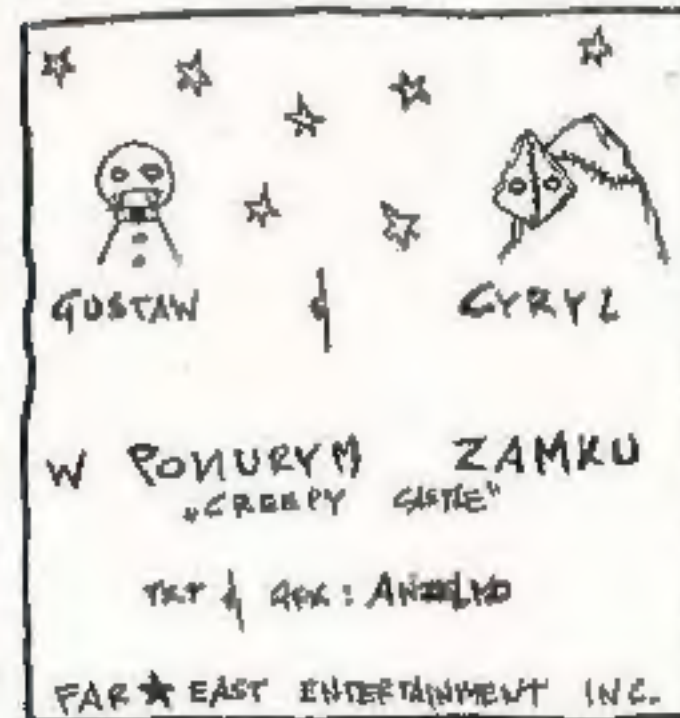 GUSTAW & CYRYL
W PONURYM ZAMKU
„CREEPY CASTLE"
TXT & GFX: ANZELMO
FAR ★ EAST ENTERTAINMENT INC.